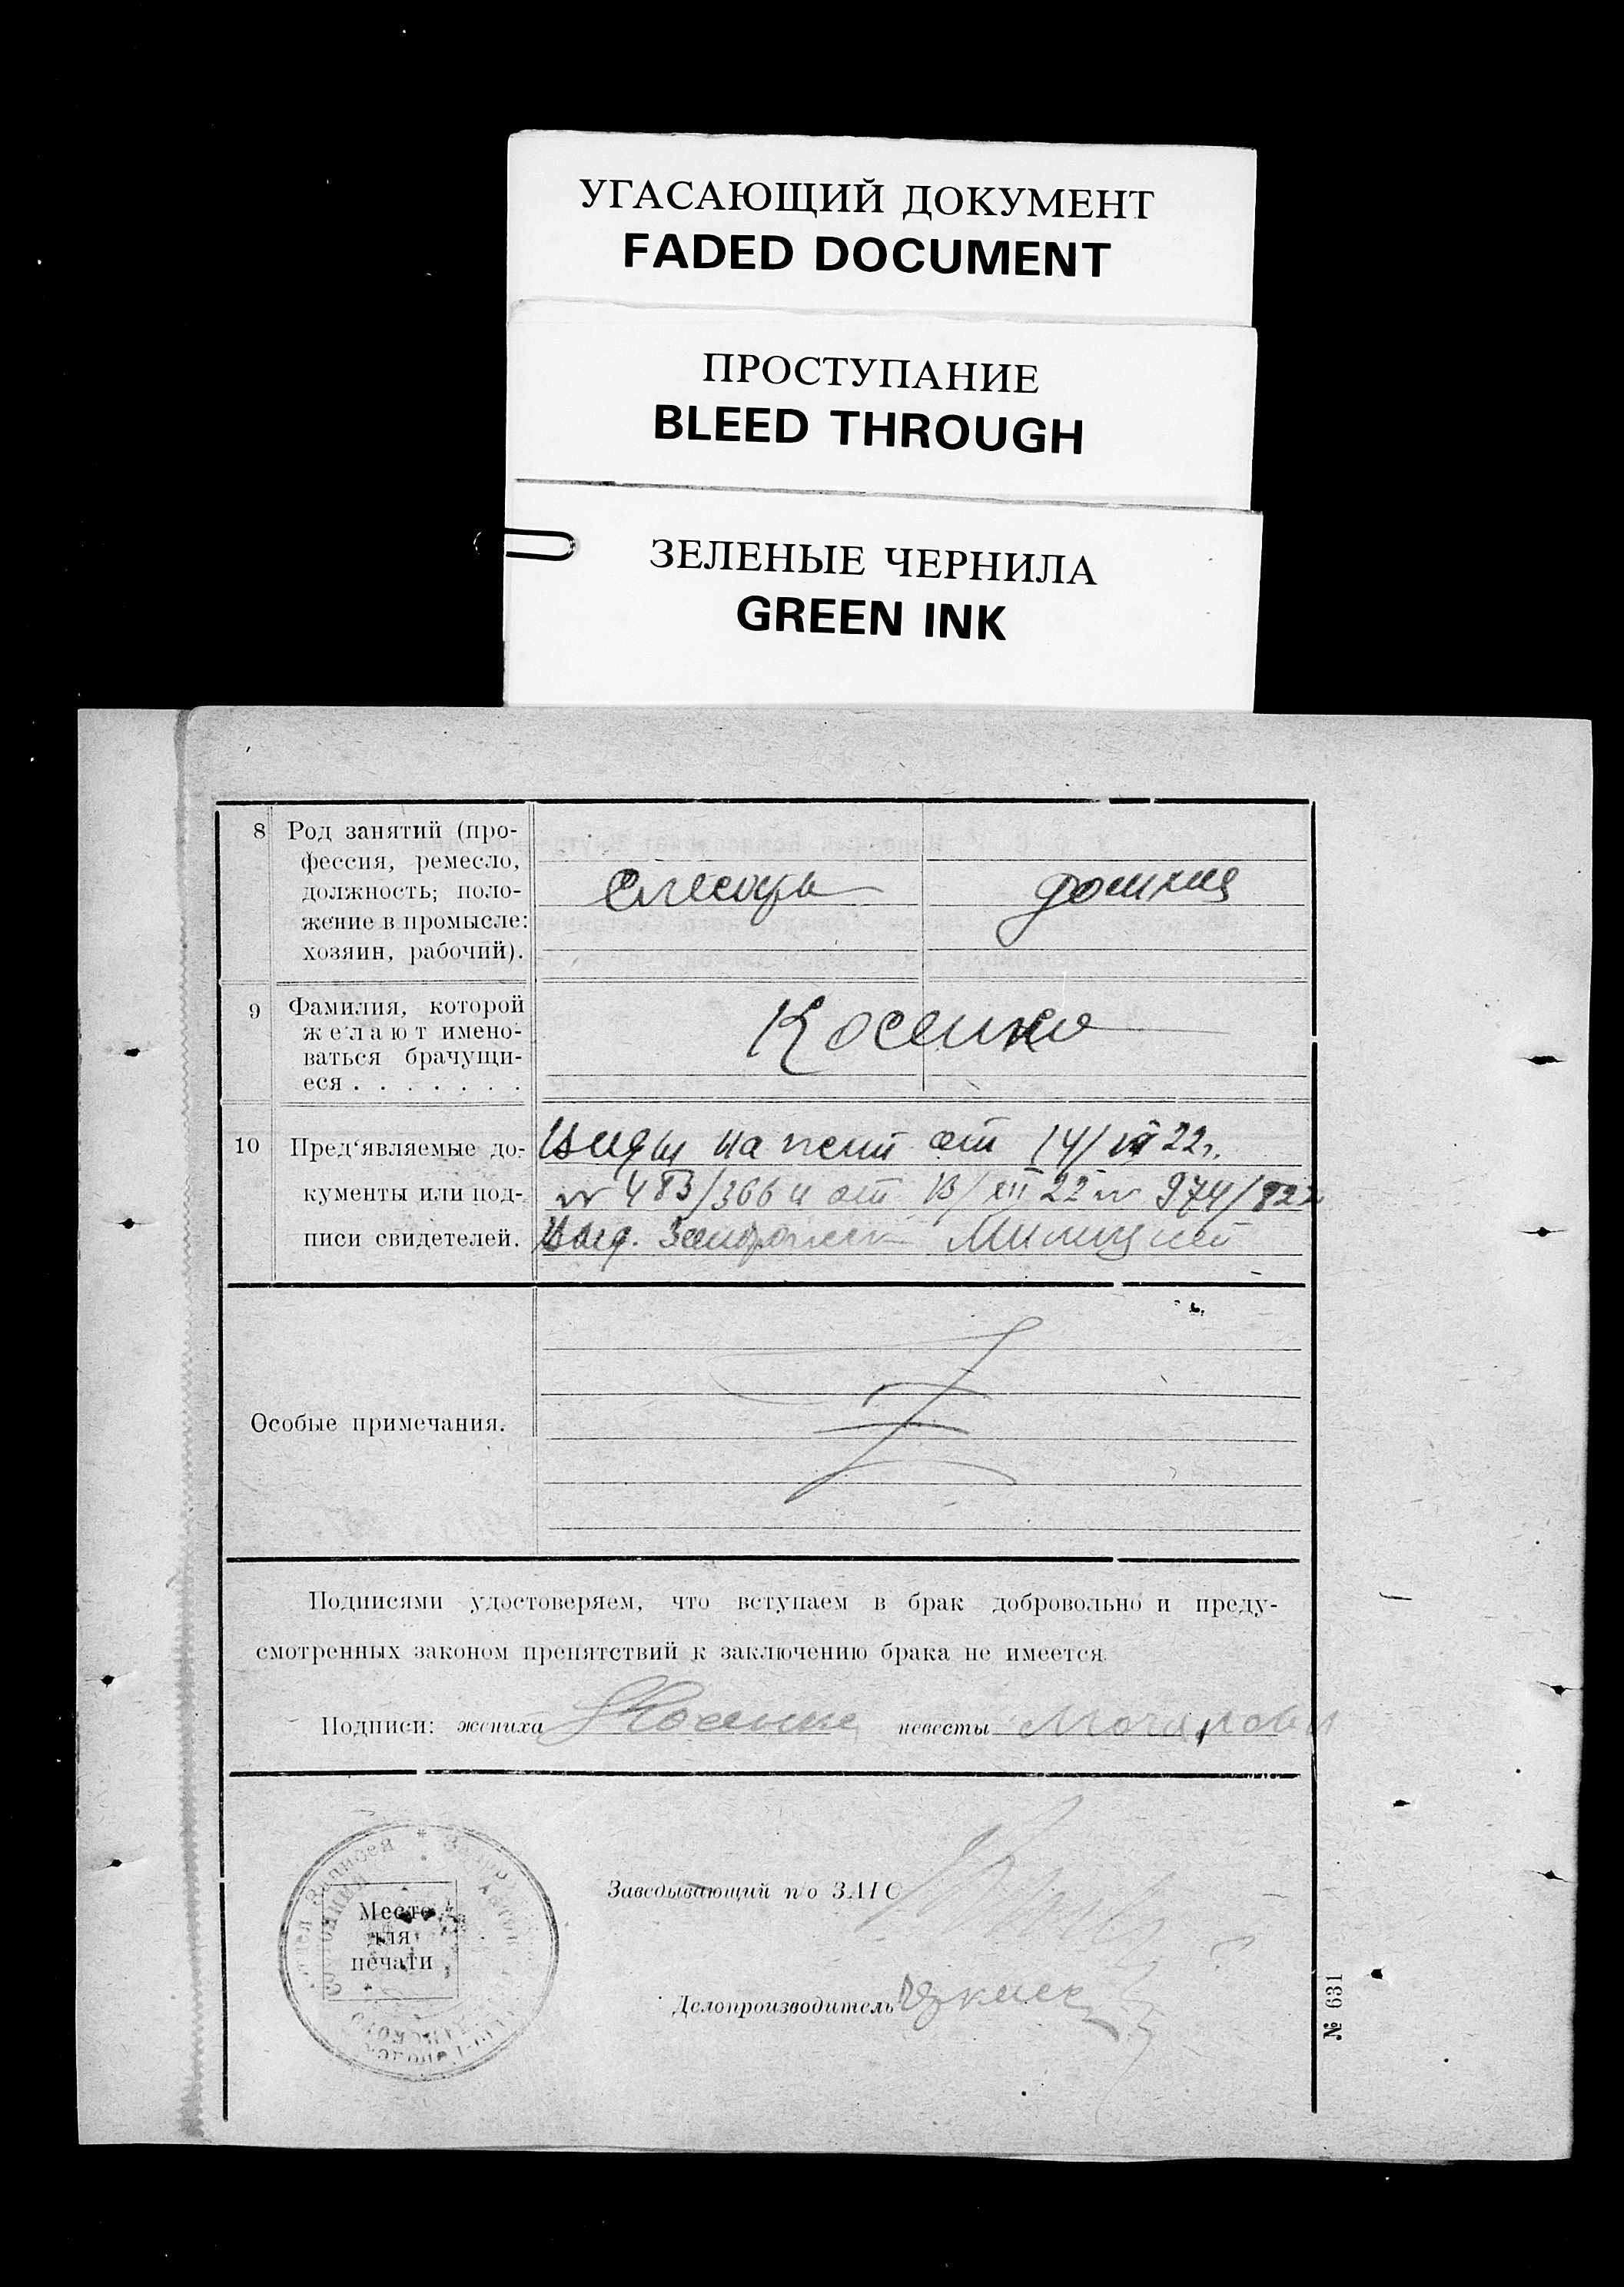 УГАСАЮЩИЙ ДОКУМЕНТ
FADED DOCUMENT
ПРОСТУПАНИЕ
BLEED THROUGH
ЗЕЛЕНЫЕ ЧЕРНИЛА
GREEN INK
8 Род занятий (про-
фессия, ремесло,
должность; поло-
жение в промысле:
хозяин, рабочий).
Слесарь
9 Фамилия, которой
желают имено-
ваться брачущи-
еся . . . . . . .
Косенко
10 Пред‘являемые до-
кументы или под-
писи свидетелей.
Виды на жит от 14/ 22 г.
№ 483/366 и от 13/XII 22 № 974/822
Выд. Милицией
Особые примечания.
Подписями удостоверяем, что вступаем в брак добровольно и преду-
смотренных законом препятствий к заключению брака не имеется.
Подписи: жениха Косенко невесты
Место
для
печати
Заведывающий по ЗАГС
Делопроизводитель
№ 631